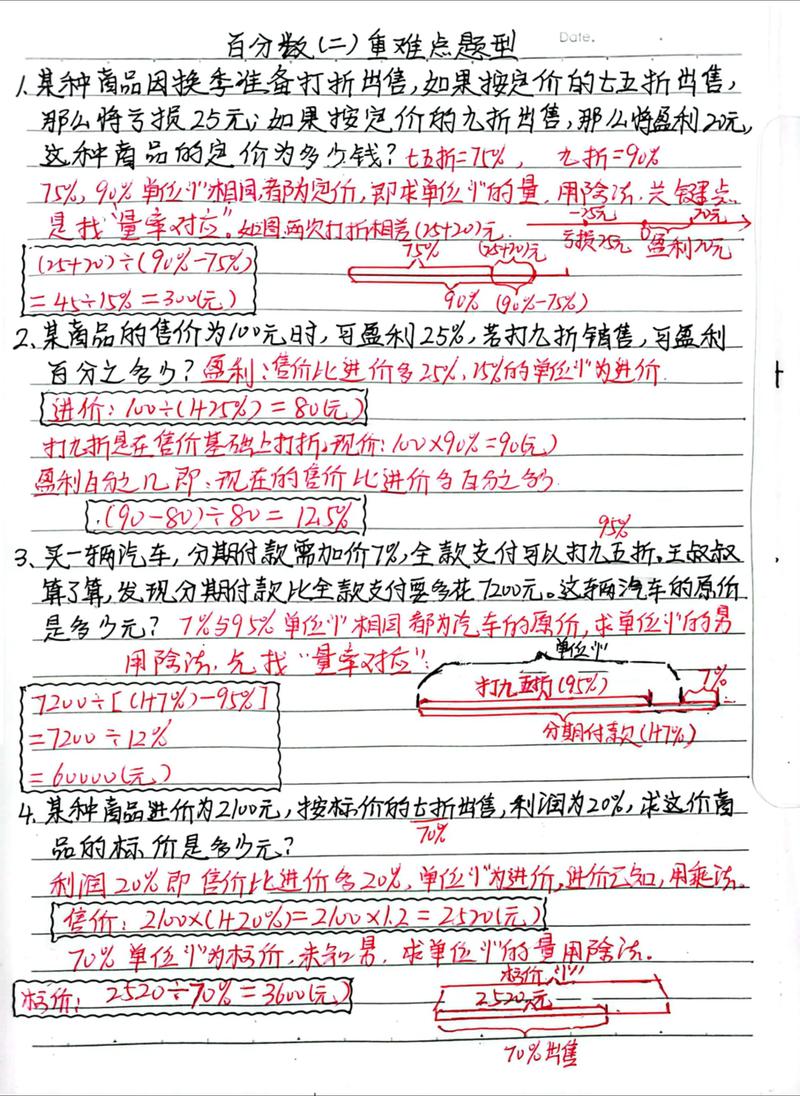 百分数(二)重难点题型
Date.
1、某种商品因换季准备打折出售,如果按定价的七五折出售,
那么将亏损25元;如果按定价的九折出售,那么将盈利20元,
这种商品的定价为多少钱? 七五折=75%, 九折=90%
75%,90%单位"1"相同,都为定价,即求单位"1"的量,用除法,关键点
是找"量率对应"。如图,两次打折相差(25+20)元.
-25元 20元
亏损25元 0 盈利20元
(25+20)÷(90%-75%)
=45÷15%=300(元)
75% (25+20)元
90% (90%-75%)
2、某商品的售价为100元时,可盈利25%,若打九折销售,可盈利
百分之多少? 盈利:售价比进价多25%,25%的单位"1"为进价.
进价:100÷(1+25%)=80(元)
打九折是在售价基础上打折。现价:100×90%=90(元)
盈利百分之几即:现在的售价比进价多百分之多少.
(90-80)÷80=12.5%
95%
3、买一辆汽车,分期付款需加价7%,全款支付可以打九五折。王叔叔
算了算,发现分期付款比全款支付要多花7200元。这辆汽车的原价
是多少元? 7%与95%单位"1"相同都为汽车的原价,求单位"1"的量
用除法.先找"量率对应":
单位"1"
打九五折(95%) 7%
分期付款(1+7%)
7200÷[(1+7%)-95%]
=7200÷12%
=60000(元)
4、某种商品进价为2100元,按标价的七折出售,利润为20%,求这价商
70%
品的标价是多少元?
利润20%即售价比进价多20%,单位"1"为进价,进价已知,用乘法。
售价:2100×(1+20%)=2100×1.2=2520(元)
70%单位"1"为标价,未知量,求单位"1"的量用除法。
标价:2520÷70%=3600(元)
标价"1"
2520元
70%出售